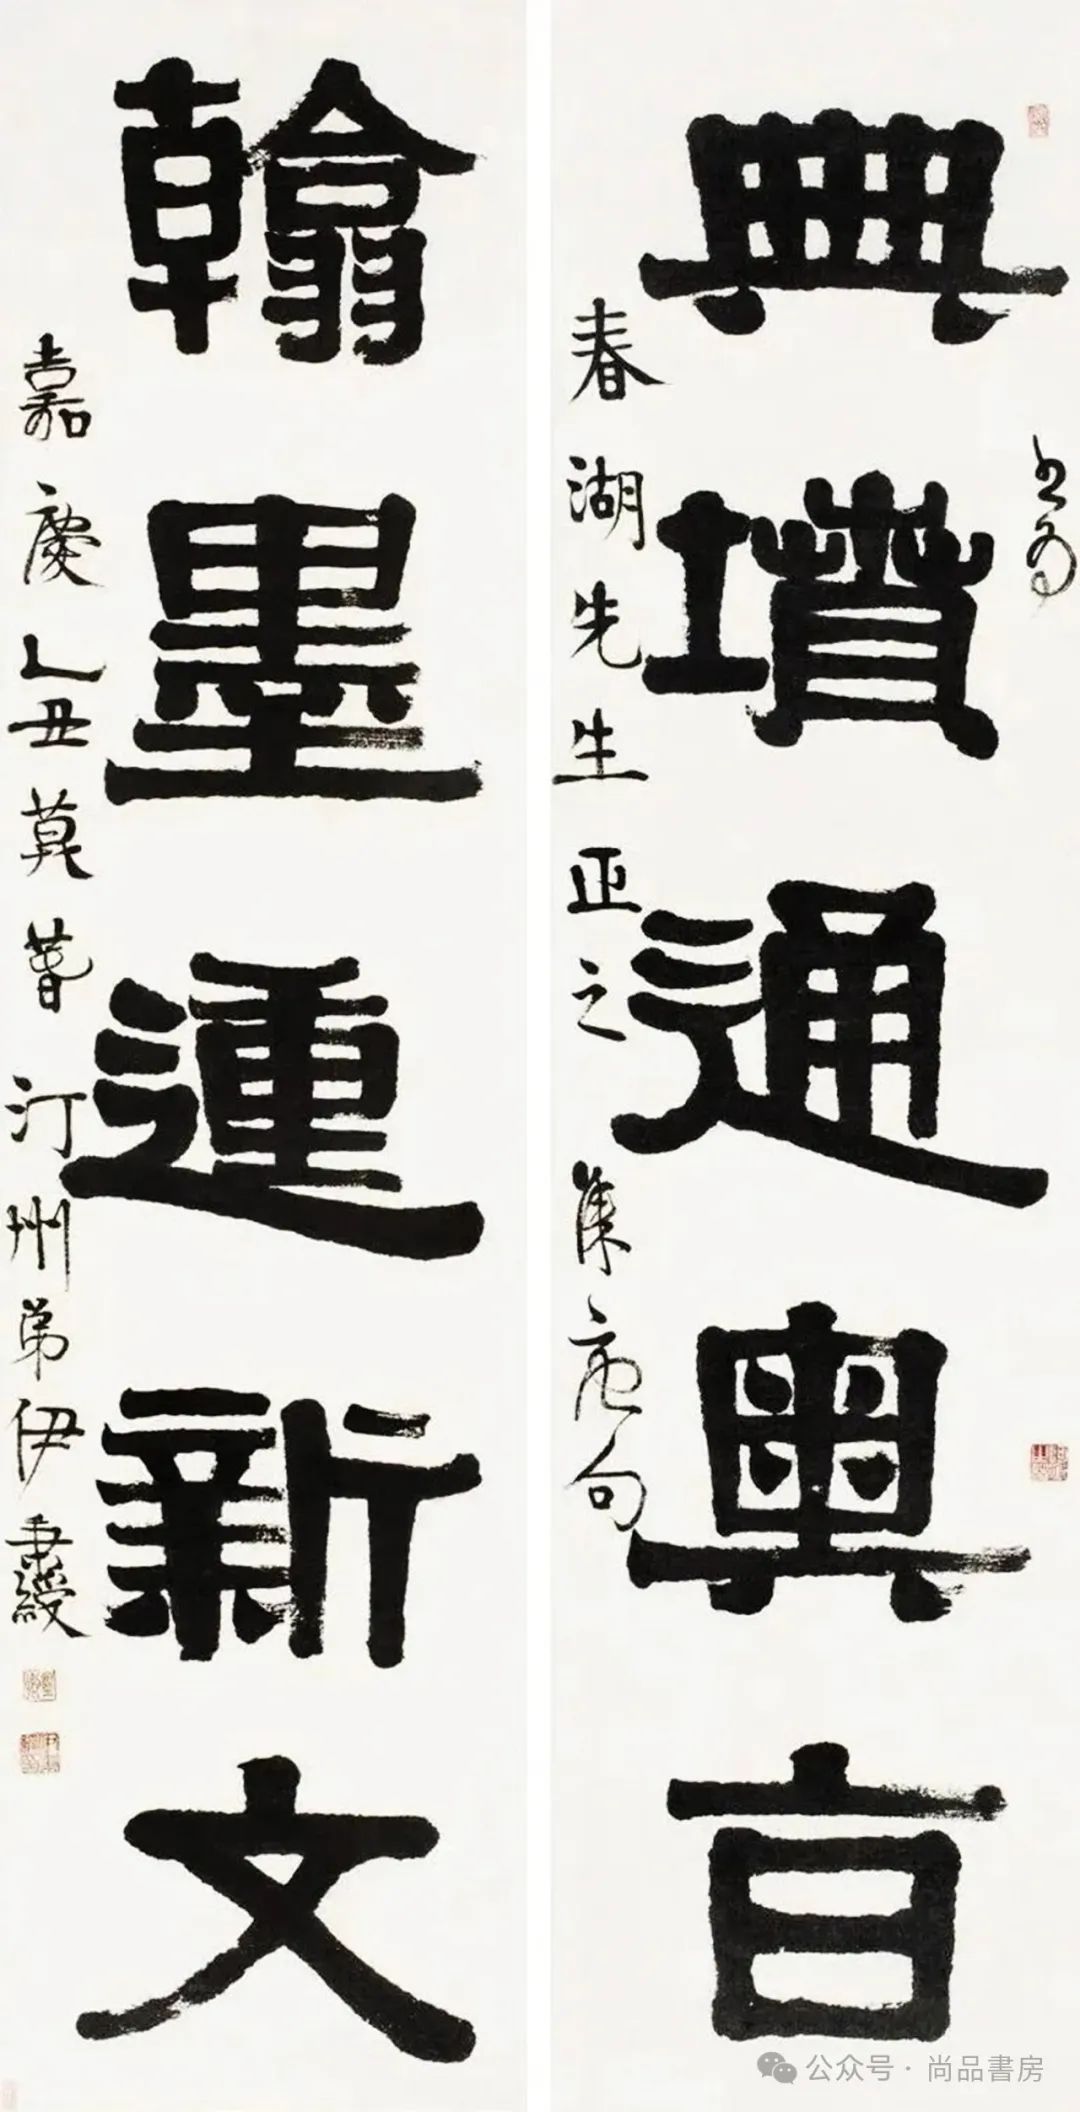 書為
典墳通奧旨
春湖先生正之 集唐句
翰墨動新文
嘉慶乙丑莫春 汀州弟伊秉綬
公众号 · 尚品書房